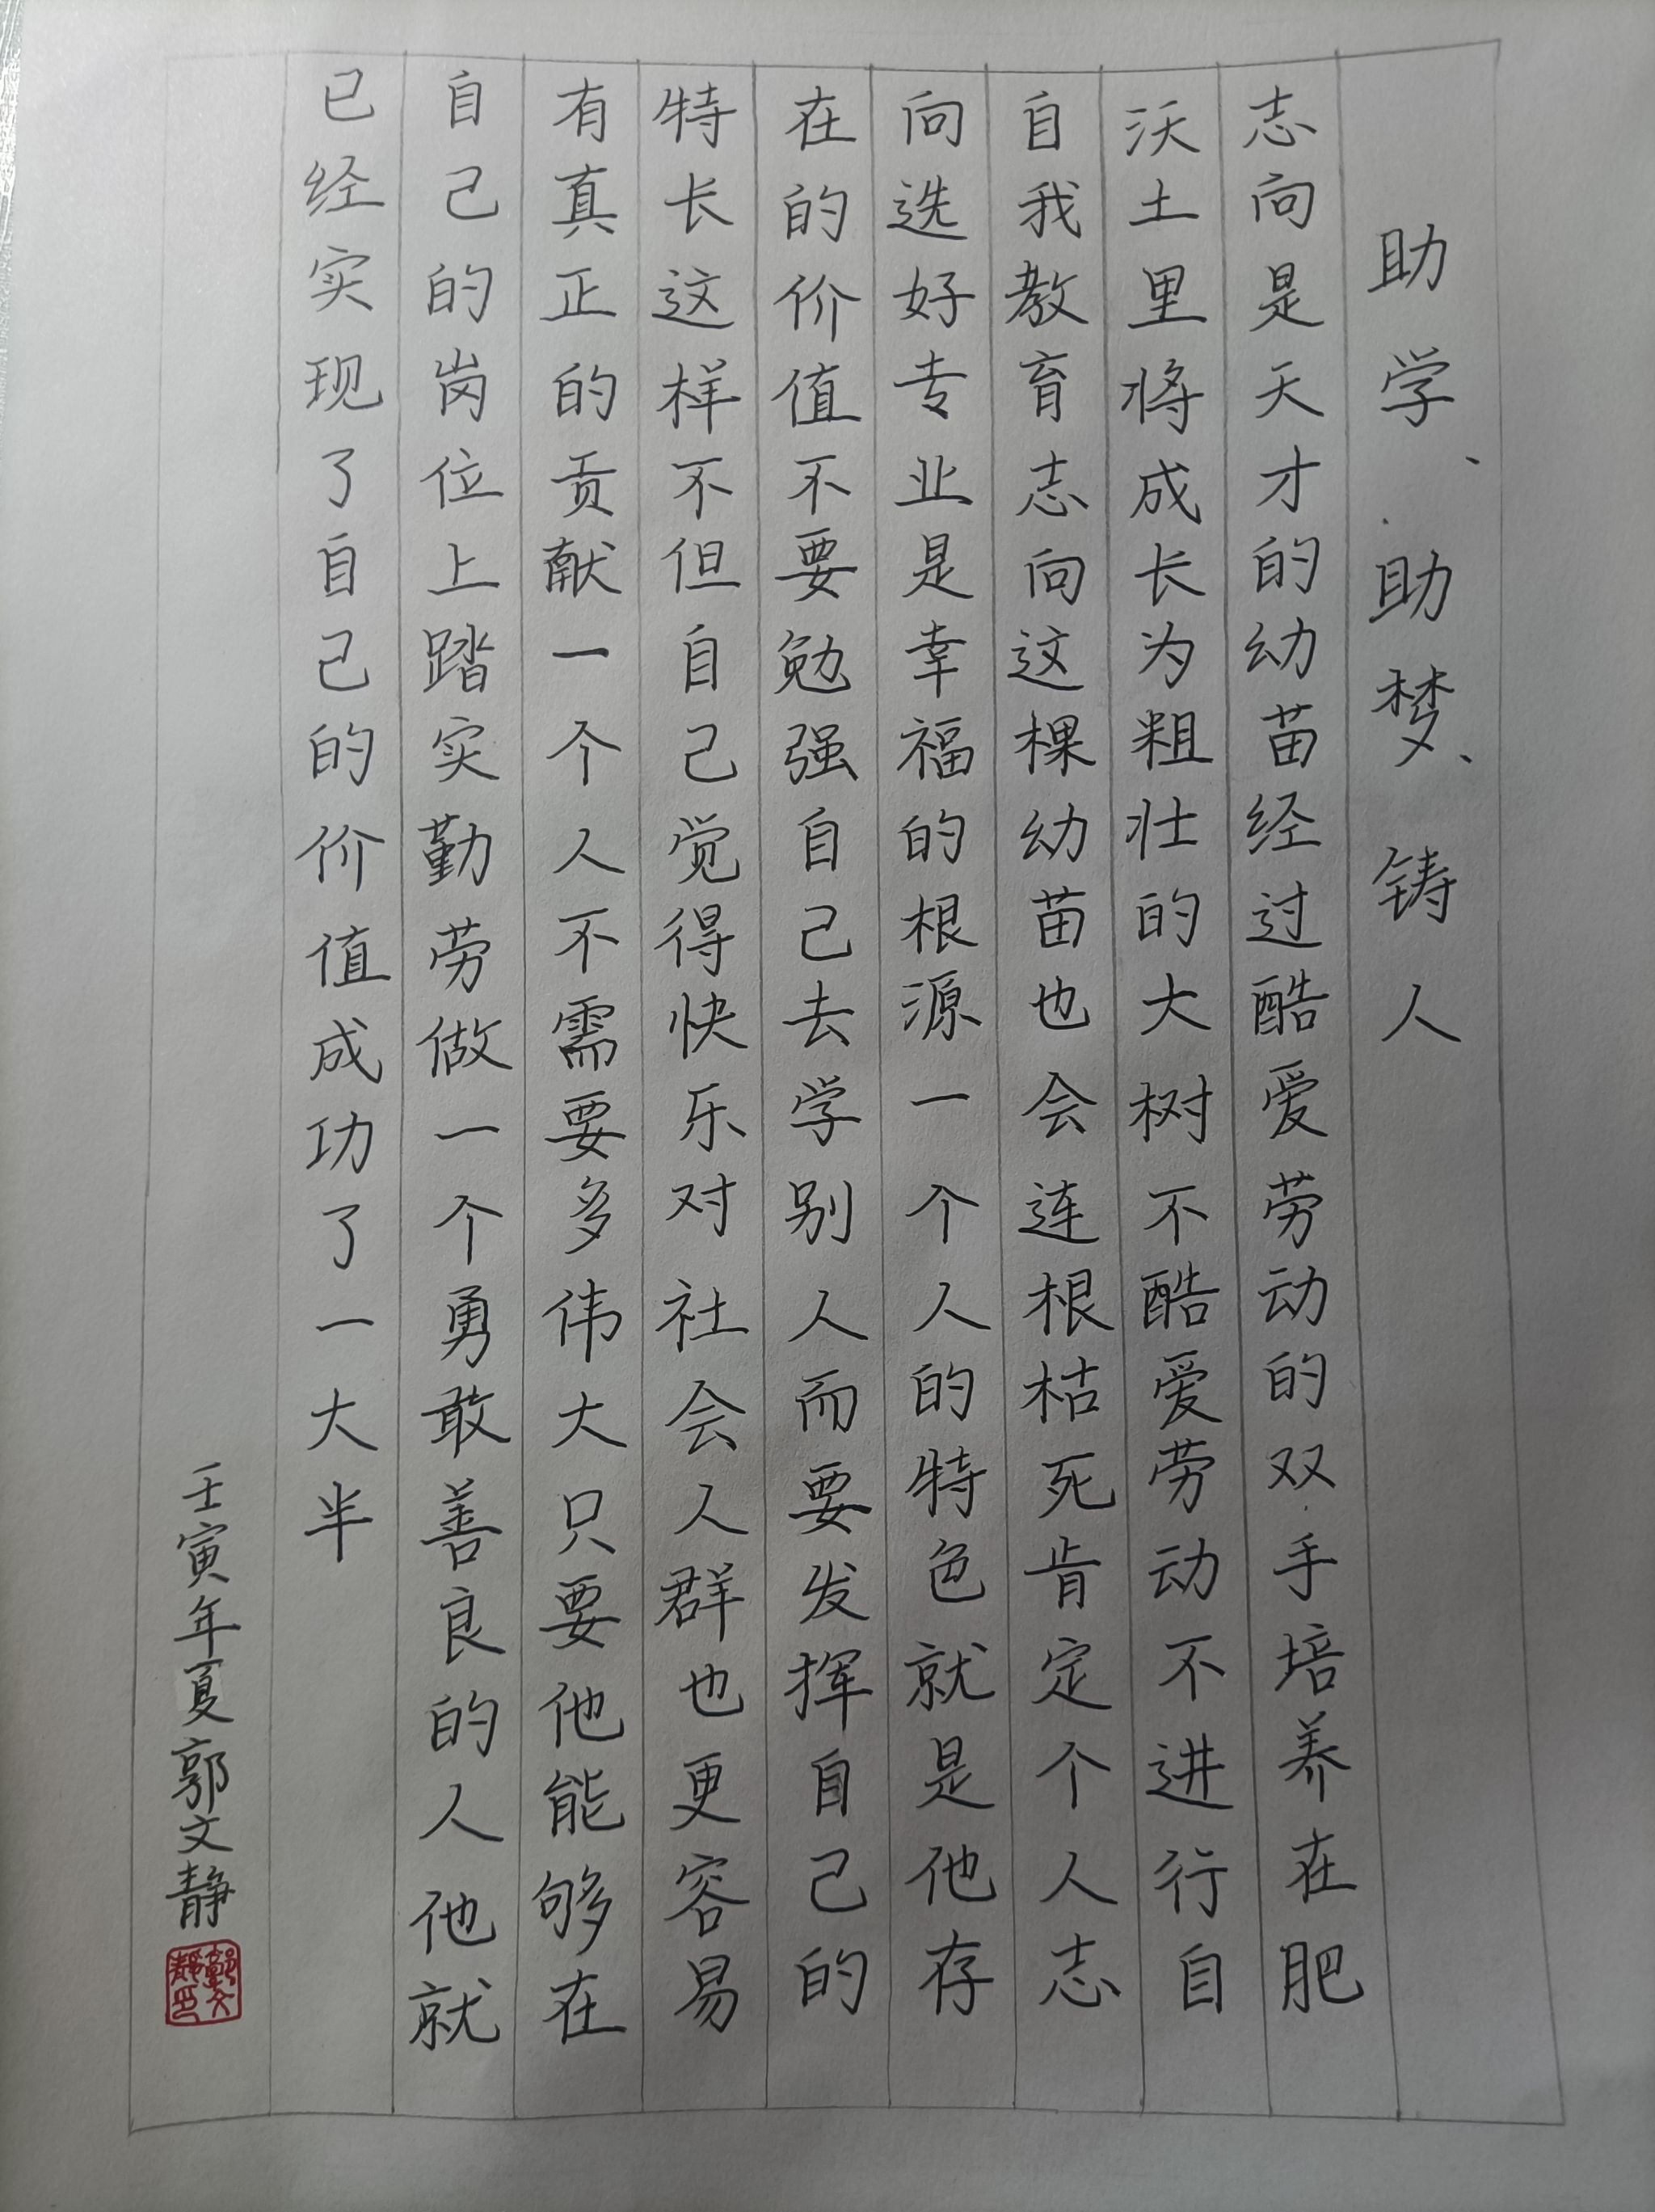 助学、助梦、铸人
志向是天才的幼苗经过酷爱劳动的双手培养在肥
沃土里将成长为粗壮的大树不酷爱劳动不进行自
自我教育志向这棵幼苗也会连根枯死肯定个人志
向选好专业是幸福的根源一个人的特色就是他存
在的价值不要勉强自己去学别人而要发挥自己的
特长这样不但自己觉得快乐对社会人群也更容易
有真正的贡献一个人不需要多伟大只要他能够在
自己的岗位上踏实勤劳做一个勇敢善良的人他就
已经实现了自己的价值成功了一大半
壬寅年夏郭文静
郭文静印